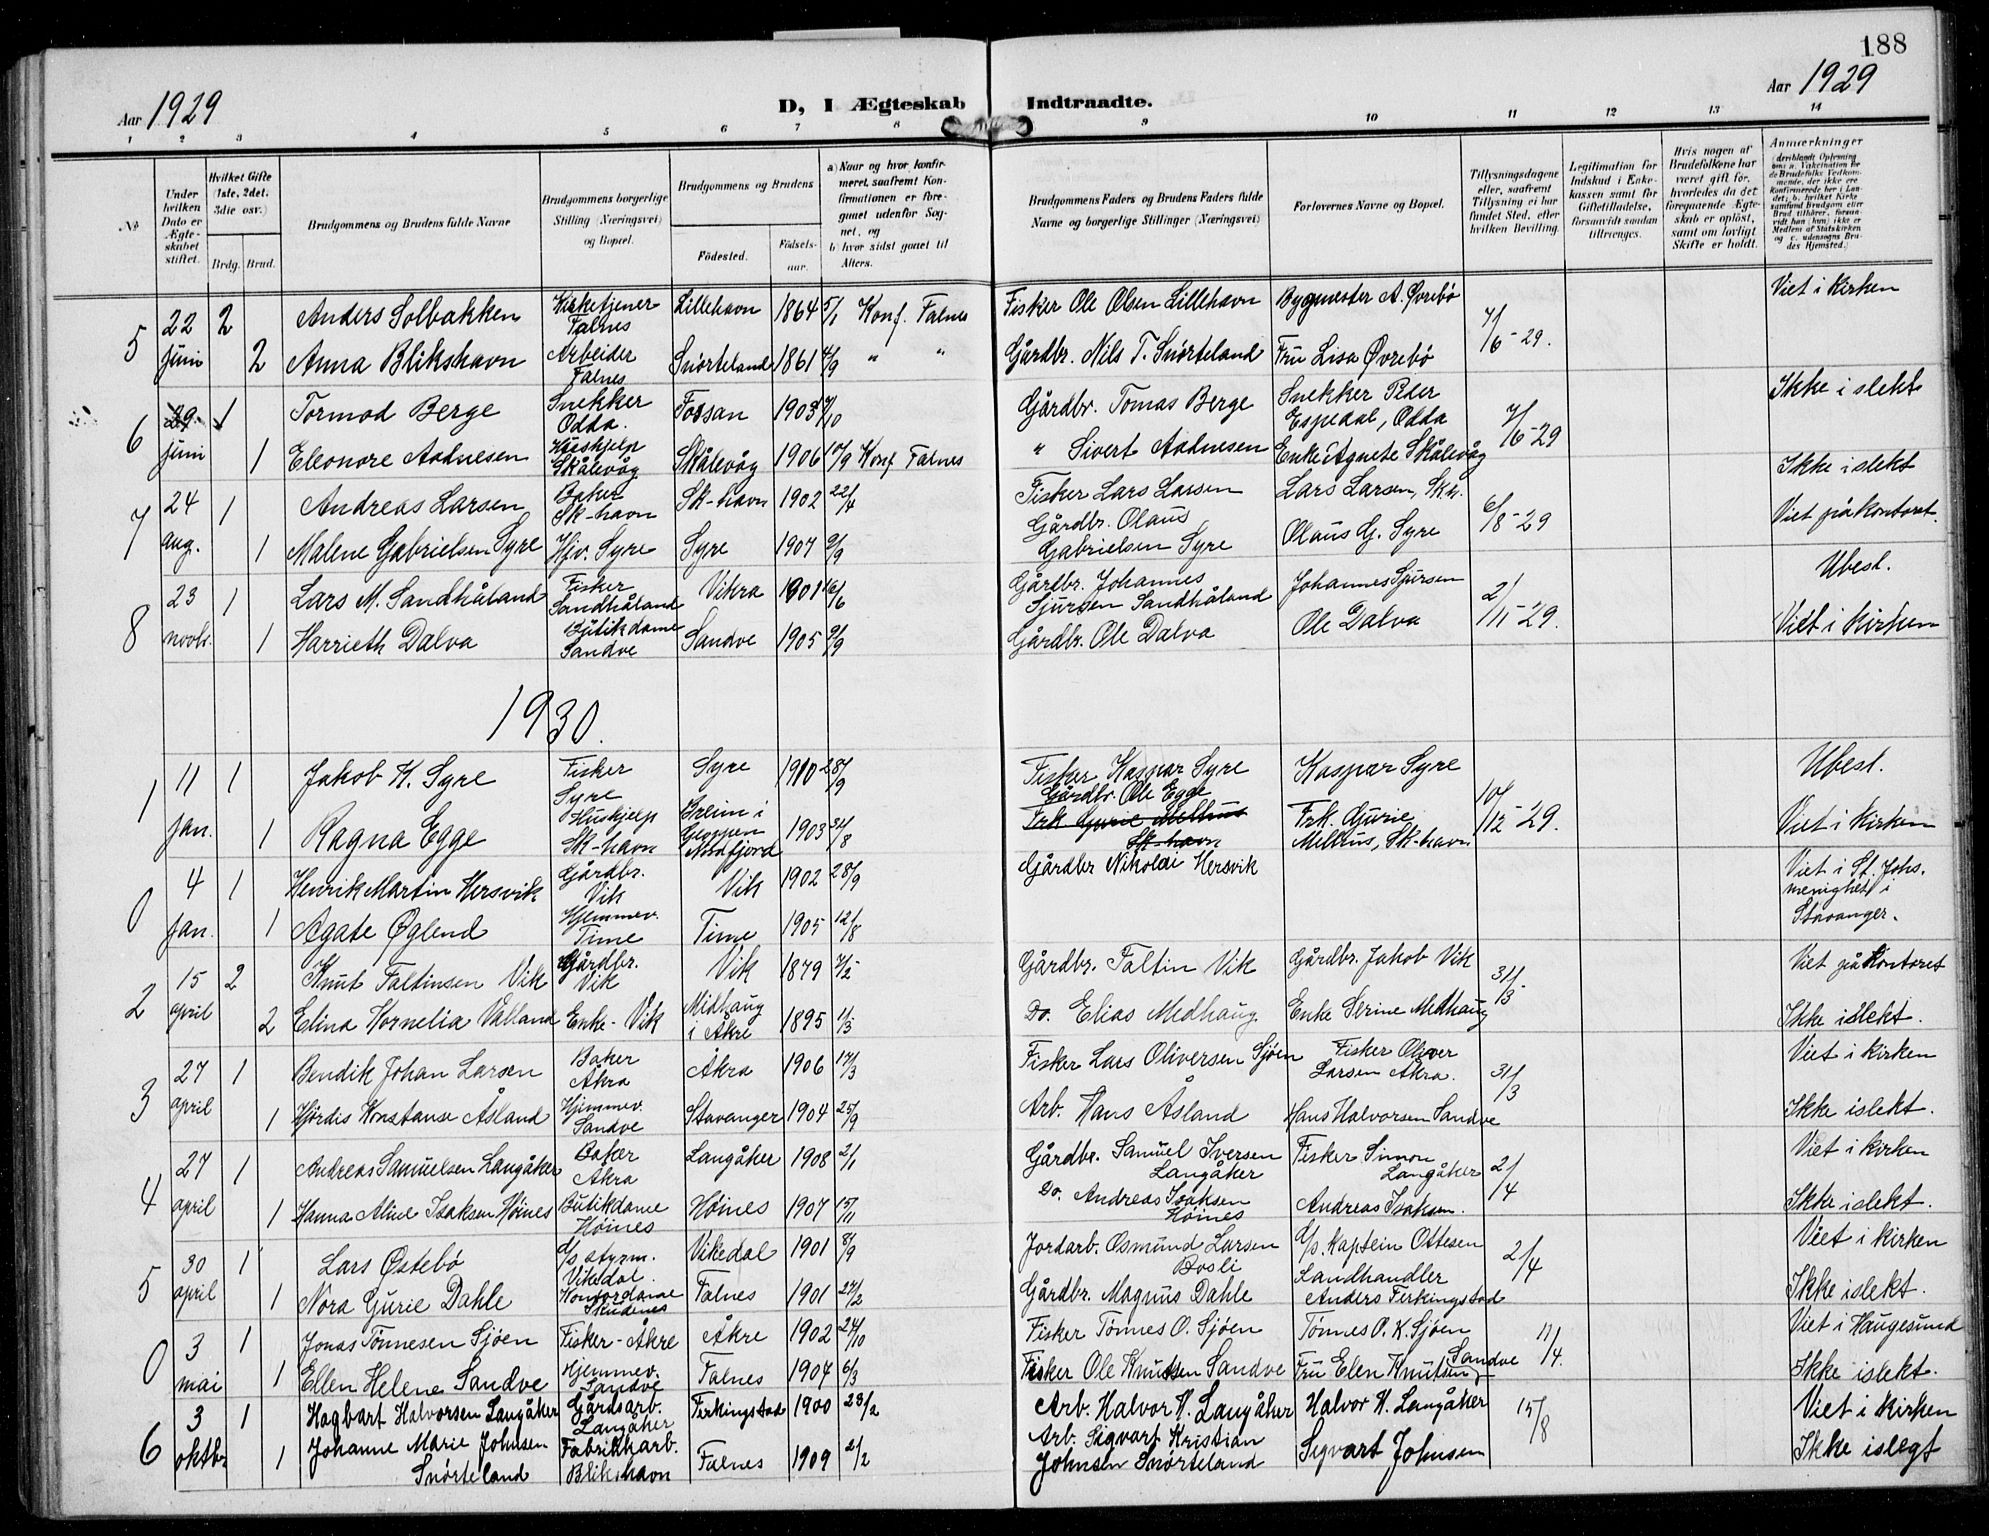 188
Aar 1929
D, I Ægteskab Indtraadte.
Aar 1929
1 2 3 4 5 6 7 8 9 10 11 12 13 14
№
Under hvilken Dato er Ægteskabet stiftet.
Hvilket Gifte (1ste, 2det, 3die osv.)
Brdg. Brud.
Brudgommens og Brudens fulde Navne
Brudgommens borgerlige Stilling (Næringsvei) og Bopæl.
Brudgommens og Brudens
Födested. Födselsaar.
a) Naar og hvor konfirmeret, saafremt Konfirmationen er foregaaet udenfor Sognet, og
b) hvor sidst gaaet til Alters.
Brudgommens Faders og Brudens Faders fulde Navne og borgerlige Stillinger (Næringsvei)
Forlovernes Navne og Bopæl.
Tillysningsdagene eller, saafremt Tillysning ei har fundet Sted, efter hvilken Bevilling.
Legitimation for Indskud i Enkekassen samt for Giftetilladelse, forsaavidt saadan tiltrænges.
Hvis nogen af Brudefolkene har været gift før, hvorledes da det foregaaende Ægteskab er oplöst, samt om lovligt Skifte er holdt.
Anmærkninger
5 22 juni 2 Anders Solbakken Kirketjener Falnes Lillehavn 1864 5/1 Konf. Falnes Fisker Ole Olsen Lillehavn Bygmester A. Øvrebø 7/6-29. Viet i kirken
2 Anna Blikshavn Arbeider Falnes Snørteland 1861 4/9 " " Gårdbr. Nils T. Snørteland Fru Lisa Øvrebø
6 29. juni 1 Tormod Berge Snekker Odda. Fossan 1903 7/10 Gårdbr. Tomas Berge Snekker Peder Espedal, Odda 7/6-29 Ikke i slekt
1 Eleonore Aadnesen Hushjelp Skålevåg Skålevåg 1906 17/9 Konf Falnes " Sivert Aadnesen Enke Agnete Skålevåg
7 24 aug. 1 Andreas Larsen Baker Sk-havn Sk-havn 1902 22/4 Fisker Lars Larsen Lars Larsen, Sk.h. 6/8-29 Ikke i slekt
1 Malene Gabrielsen Syre Hjv. Syre Syre 1907 9/9 Gårdbr. Olaus Gabrielsen Syre Olaus G. Syre Viet på kontoret.
8 23 novbr. 1 Lars M. Sandhåland Fisker Sandhåland Vikra 1901 16/6 Gårdbr. Johannes Sjursen Sandhåland Johannes Sjursen 2/11-29. Ubesl.
1 Harrieth Dalva Butikdame Sandve Sandve 1905 9/9 Gårdbr. Ole Dalva Ole Dalva Viet i kirken
1930.
1 11 jan. 1 Jakob K. Syre Fisker Syre Syre 1910 28/9 Fisker Kaspar Syre Kaspar Syre 10/12-29. Ubesl.
1 Ragna Egge Hushjelp Sk-havn Breim i Gloppen Nordfjord 1903 31/8 Gårdbr. Ole Egge Frk Gurie Melhus Sk-havn Frk. Gurie Melhus, Sk-havn Viet i kirken
0 4 jan. 1 Henrik Martin Hersvik Gårdbr. Vik Vik 1902 28/9 Gårdbr Nikolai Hersvik Viet i St. Johs. menighet i Stavanger.
1 Agate Øglend Hjemmev. Time Time 1905 12/8
2 15 april 2 Knut Faltinsen Vik Gårdbr. Vik Vik 1879 7/2 Gårdbr. Faltin Vik Gårdbr. Jakob Vik 31/3. Viet på kontoret
2 Elina Kornelia Valland Enke - Vik Midhaug i Åkre 1895 11/3 Do. Elias Medhaug Enke Serine Medhaug Ikke islekt.
3 27 april 1 Bendik Johan Larsen Baker Åkra Åkra 1906 17/3 Fisker Lars Oliversen Sjøen Fisker Oliver Larsen Åkra. 31/3 Viet i kirken
1 Hjørdis Konstanse Åsland Hjemmev. Sandve Stavanger 1904 25/9 Arb. Hans Åsland Hans Halvorsen Sandve Ikke islekt.
4 27 april 1 Andreas Samuelsen Langåker Baker Åkra Langåker 1908 2/1 Gårdbr. Samuel Iversen Langåker Fisker Simon Langåker 2/4 Viet i kirken
1 Hanna Aline Isaksen Høines Butikdame Høines Høines 1907 15/11 Do. Andreas Isaksen Høines Andreas Isaksen. Ikke islekt.
5 30 april 1 Lars Østebø d/s styrm. Vikedal. Vikedal 1901 8/9 Jordarb. Osmund Larsen Bosli d/s. kaptein Ottesen 2/4 Viet i kirken
1 Nora Gurie Dahle Kontordame Skudenes Falnes 1901 27/2 Gårdbr. Magnus Dahle Landhandler Anders Ferkingstad Ikke islekt.
0 3 mai 1 Jonas Tønnesen Sjøen Fisker - Åkre Åkre 1902 24/10 Fisker Tønnes O. Sjøen Tønnes O. K. Sjøen 11/4. Viet i Haugesund
1 Ellen Helene Sandve Hjemmev. Sandve Falnes 1904 6/3 Fisker Ole Knutsen Sandve Fru Elen Knutsen Sandve Ikke islekt.
6 3 oktbr 1 Hagbart Halvorsen Langåker Gårdsarb. Langåker Ferkingstad 1900 23/2 Arb. Halvor H. Langåker Halvor H. Langåker 15/8 Viet i kirken
1 Johanne Marie Johnsen Snørteland Fabrikkarb. Blikshavn Falnes 1909 2/2 Arb. Sigvart Kristian Johnsen Snørteland Sigvart Johnsen Ikke islegt